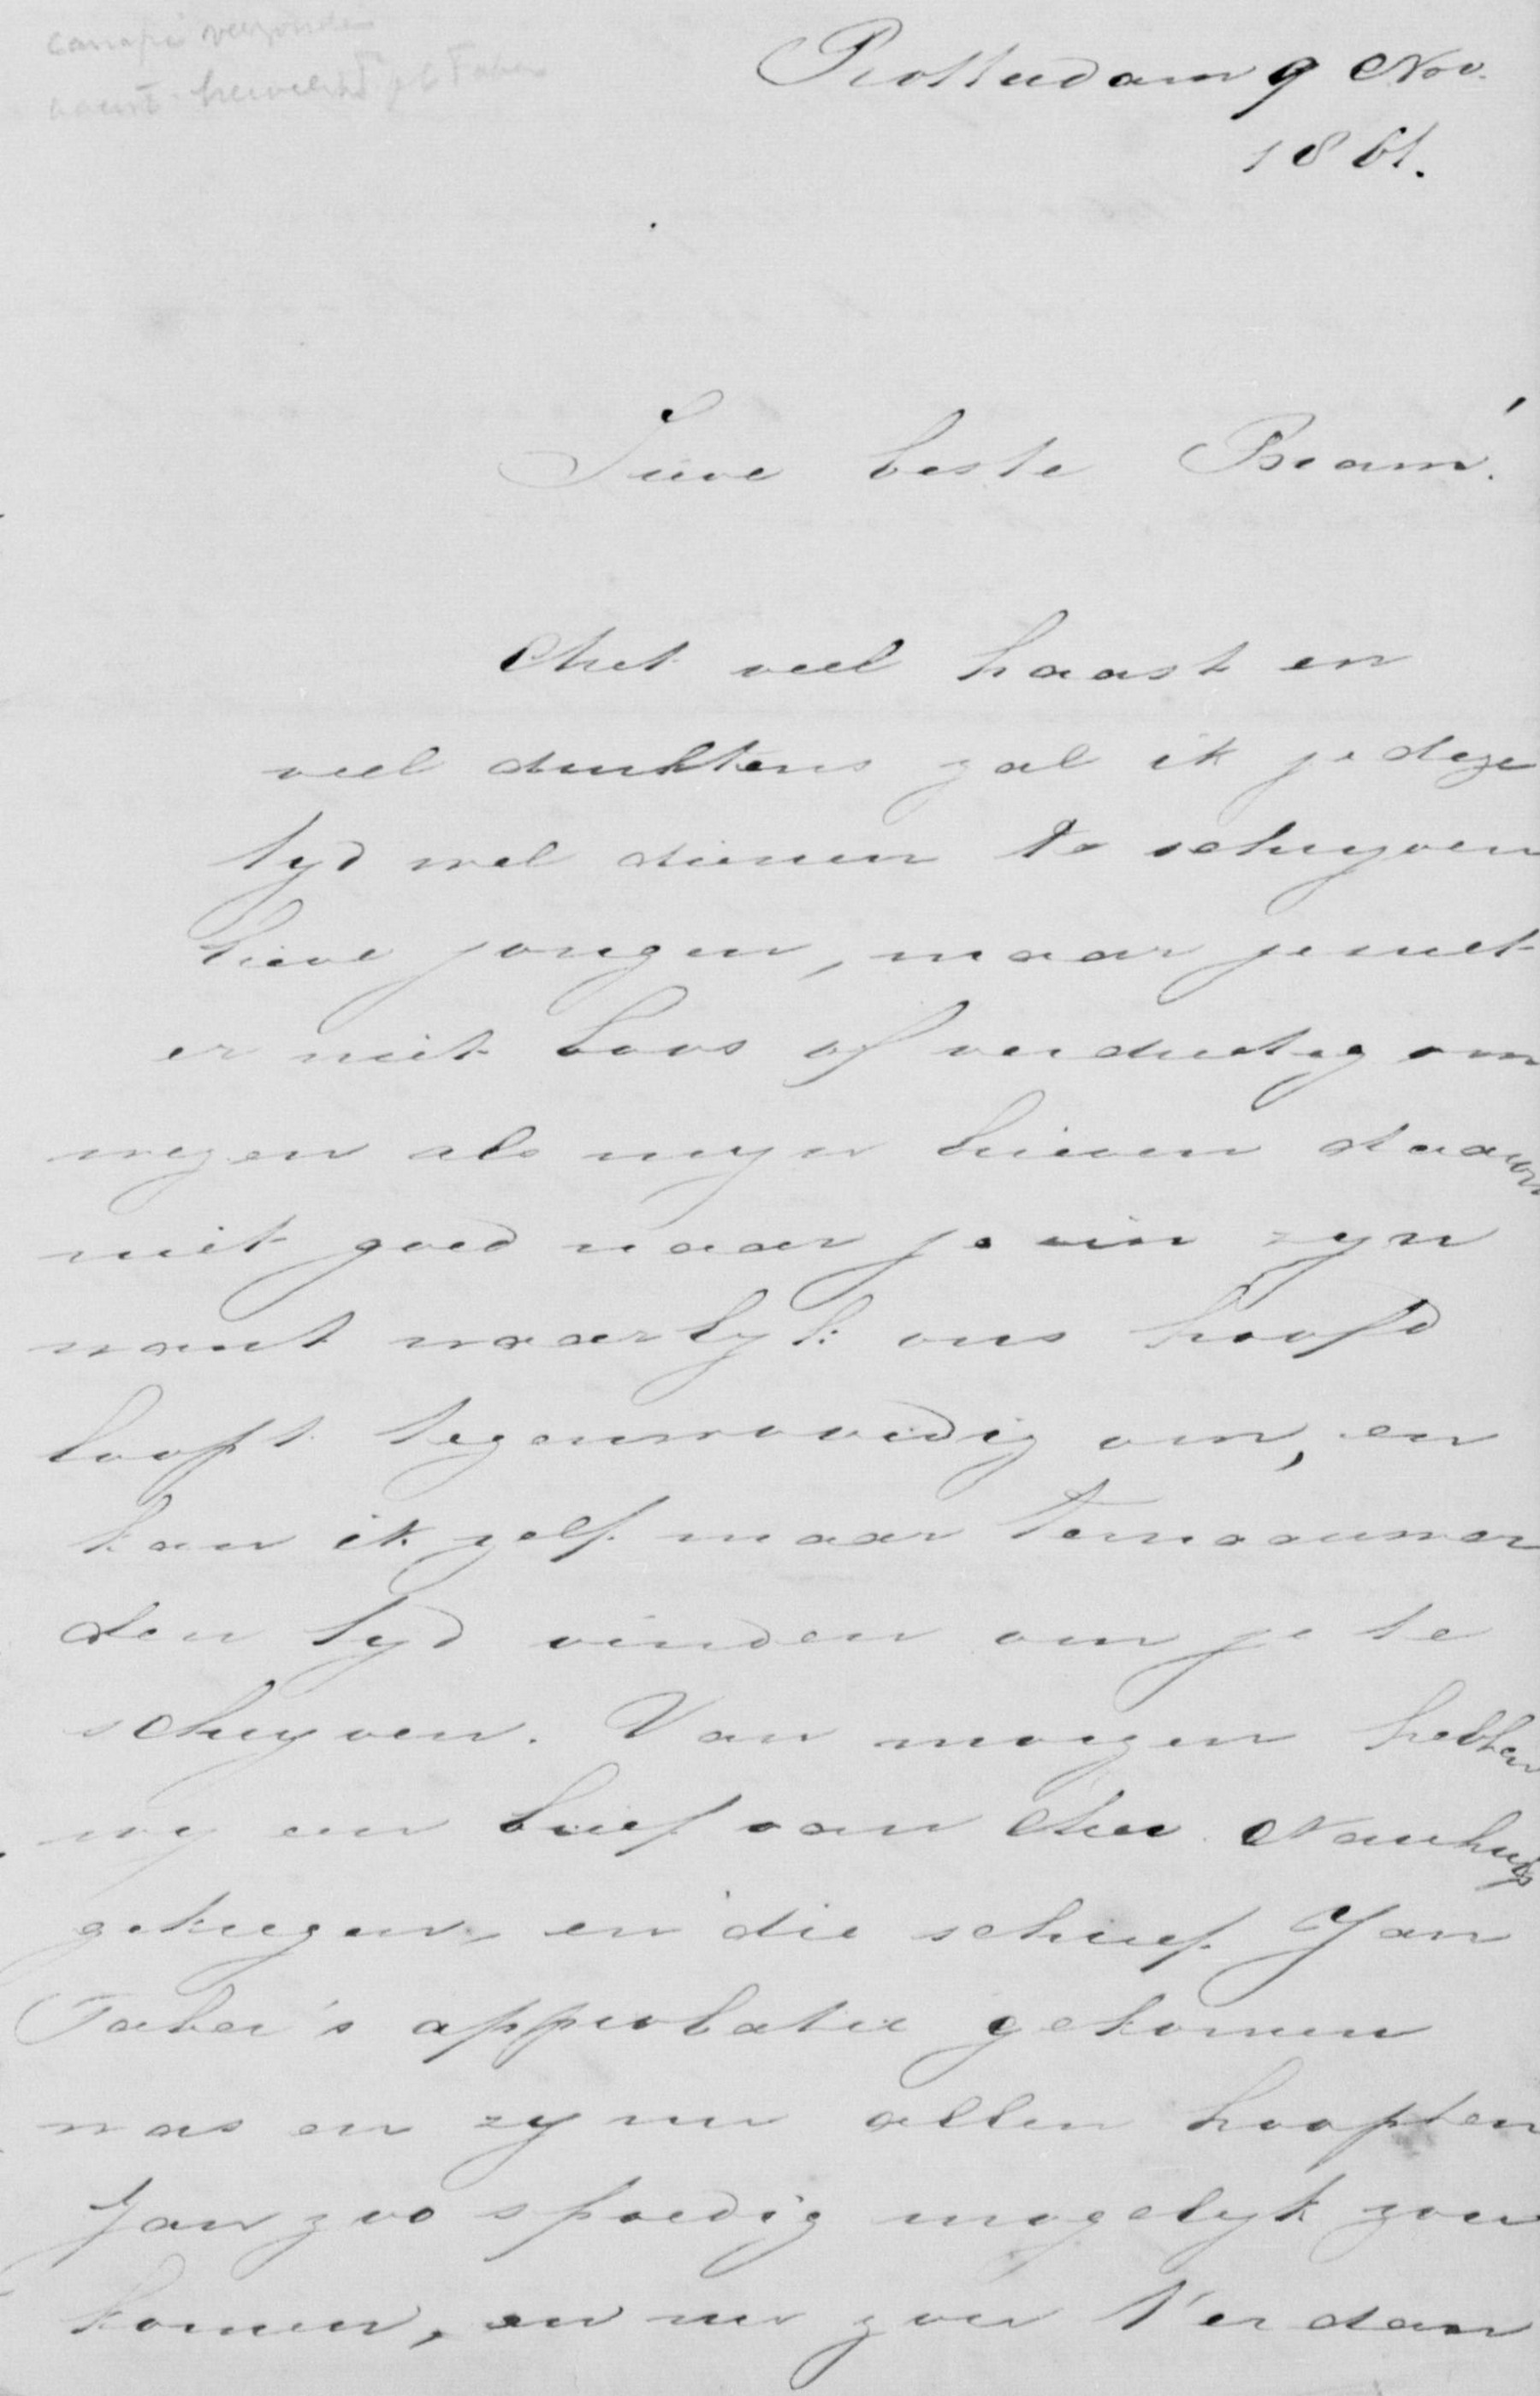 Rotterdam 9 Nov.
1861.
Lieve beste Bram!
Met veel haast en
veel drukten zal ik je deze
tyd wel dienen te schryven
lieve jongen, maar je moet
er niet boos of verdrietig om
wezen als myn brieven daarom
niet goed naar je zin zyn
want waarlyk ons hoofd
loopt tegenwoordig om, en
kan ik zelf maar ternaauwer
den tyd vinden om je te
schryven. Van morgen hebben
wy een brief van Mev.
gekregen, en die schreef Jan
Faber's approbatie gekomen
was en zy nu allen hoopten
Jan zoo spoedig mogelyk zou
komen, en nu zou 't er dan